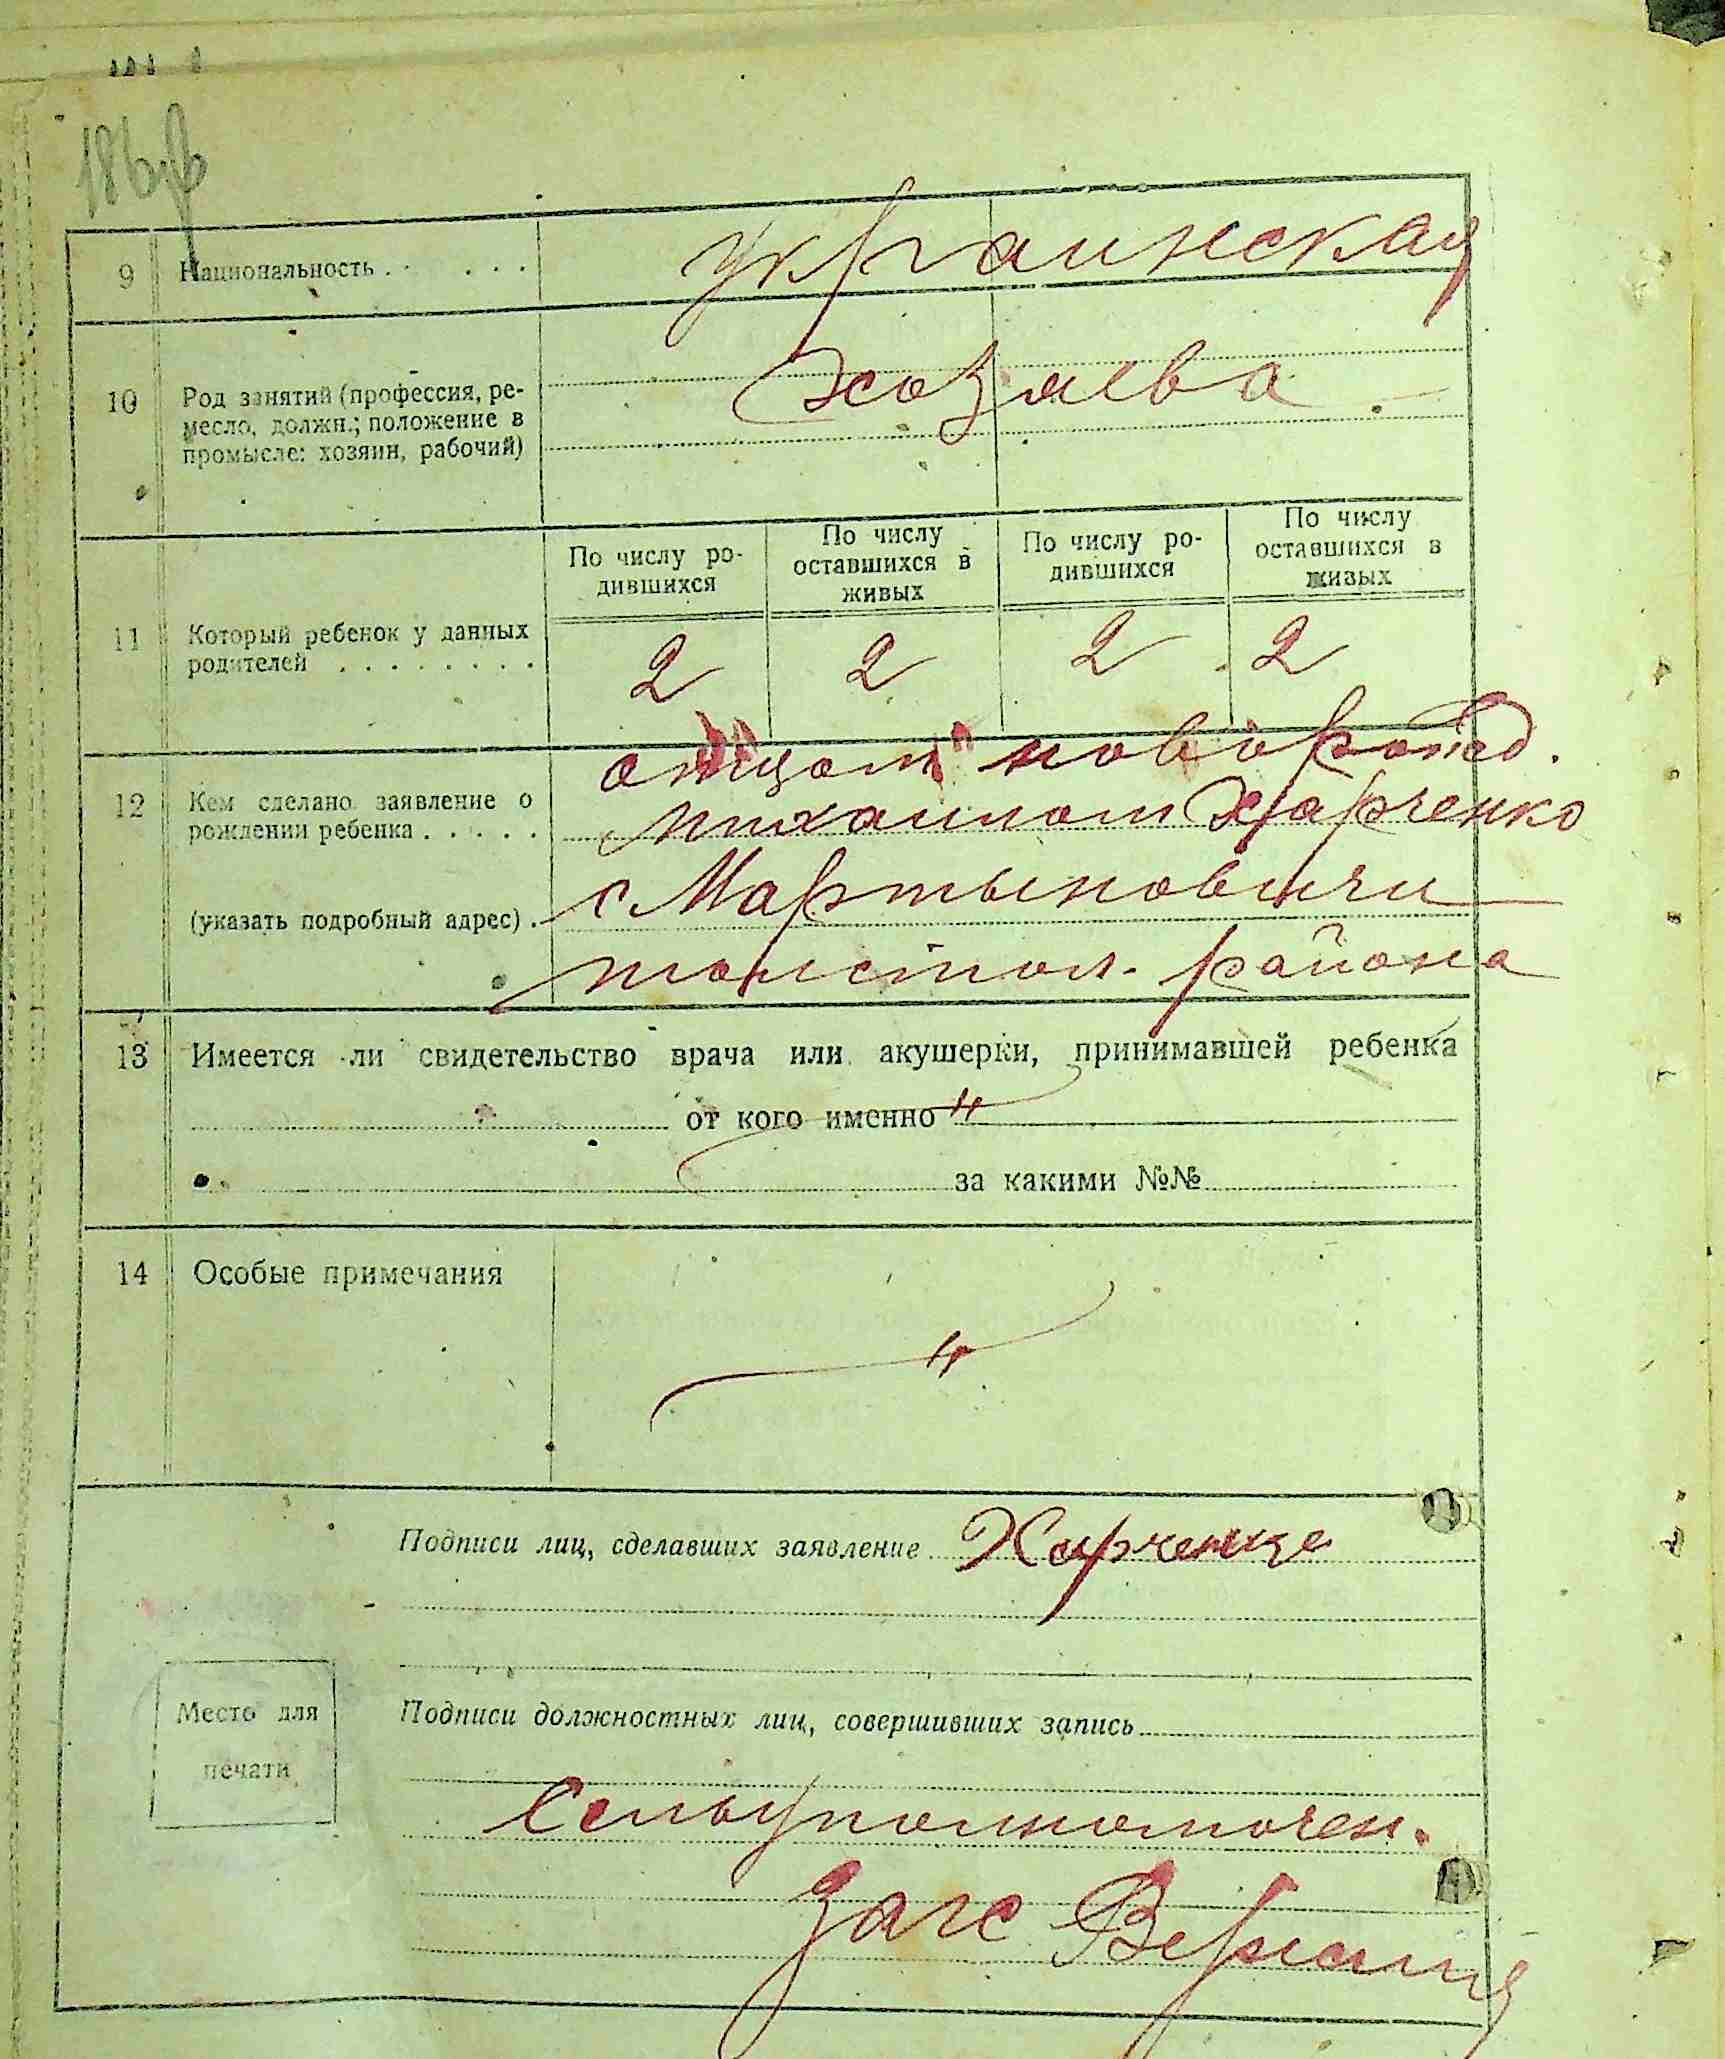 186
9 Национальность . . . . . украинская
10 Род занятий (профессия, ре-
месло, должн.; положение в
промысле: хозяин, рабочий)
хозяева
По числу ро-
дившихся
По числу
оставшихся в
живых
По числу ро-
дившихся
По числу
оставшихся в
живых
11 Который ребенок у данных
родителей . . . . . . . .
2 2 2 2
12 Кем сделано заявление о
рождении ребенка . . . . .
(указать подробный адрес) .
отцом новорожд.
михаилом Харченко
с Мартыновичи
толстол. района
13 Имеется ли свидетельство врача или акушерки, принимавшей ребенка
от кого именно "
за какими №№
14 Особые примечания
"
Подписи лиц, сделавших заявление Харченко
Место для
печати
Подписи должностных лиц, совершивших запись
Сельуполномочен.
Загс